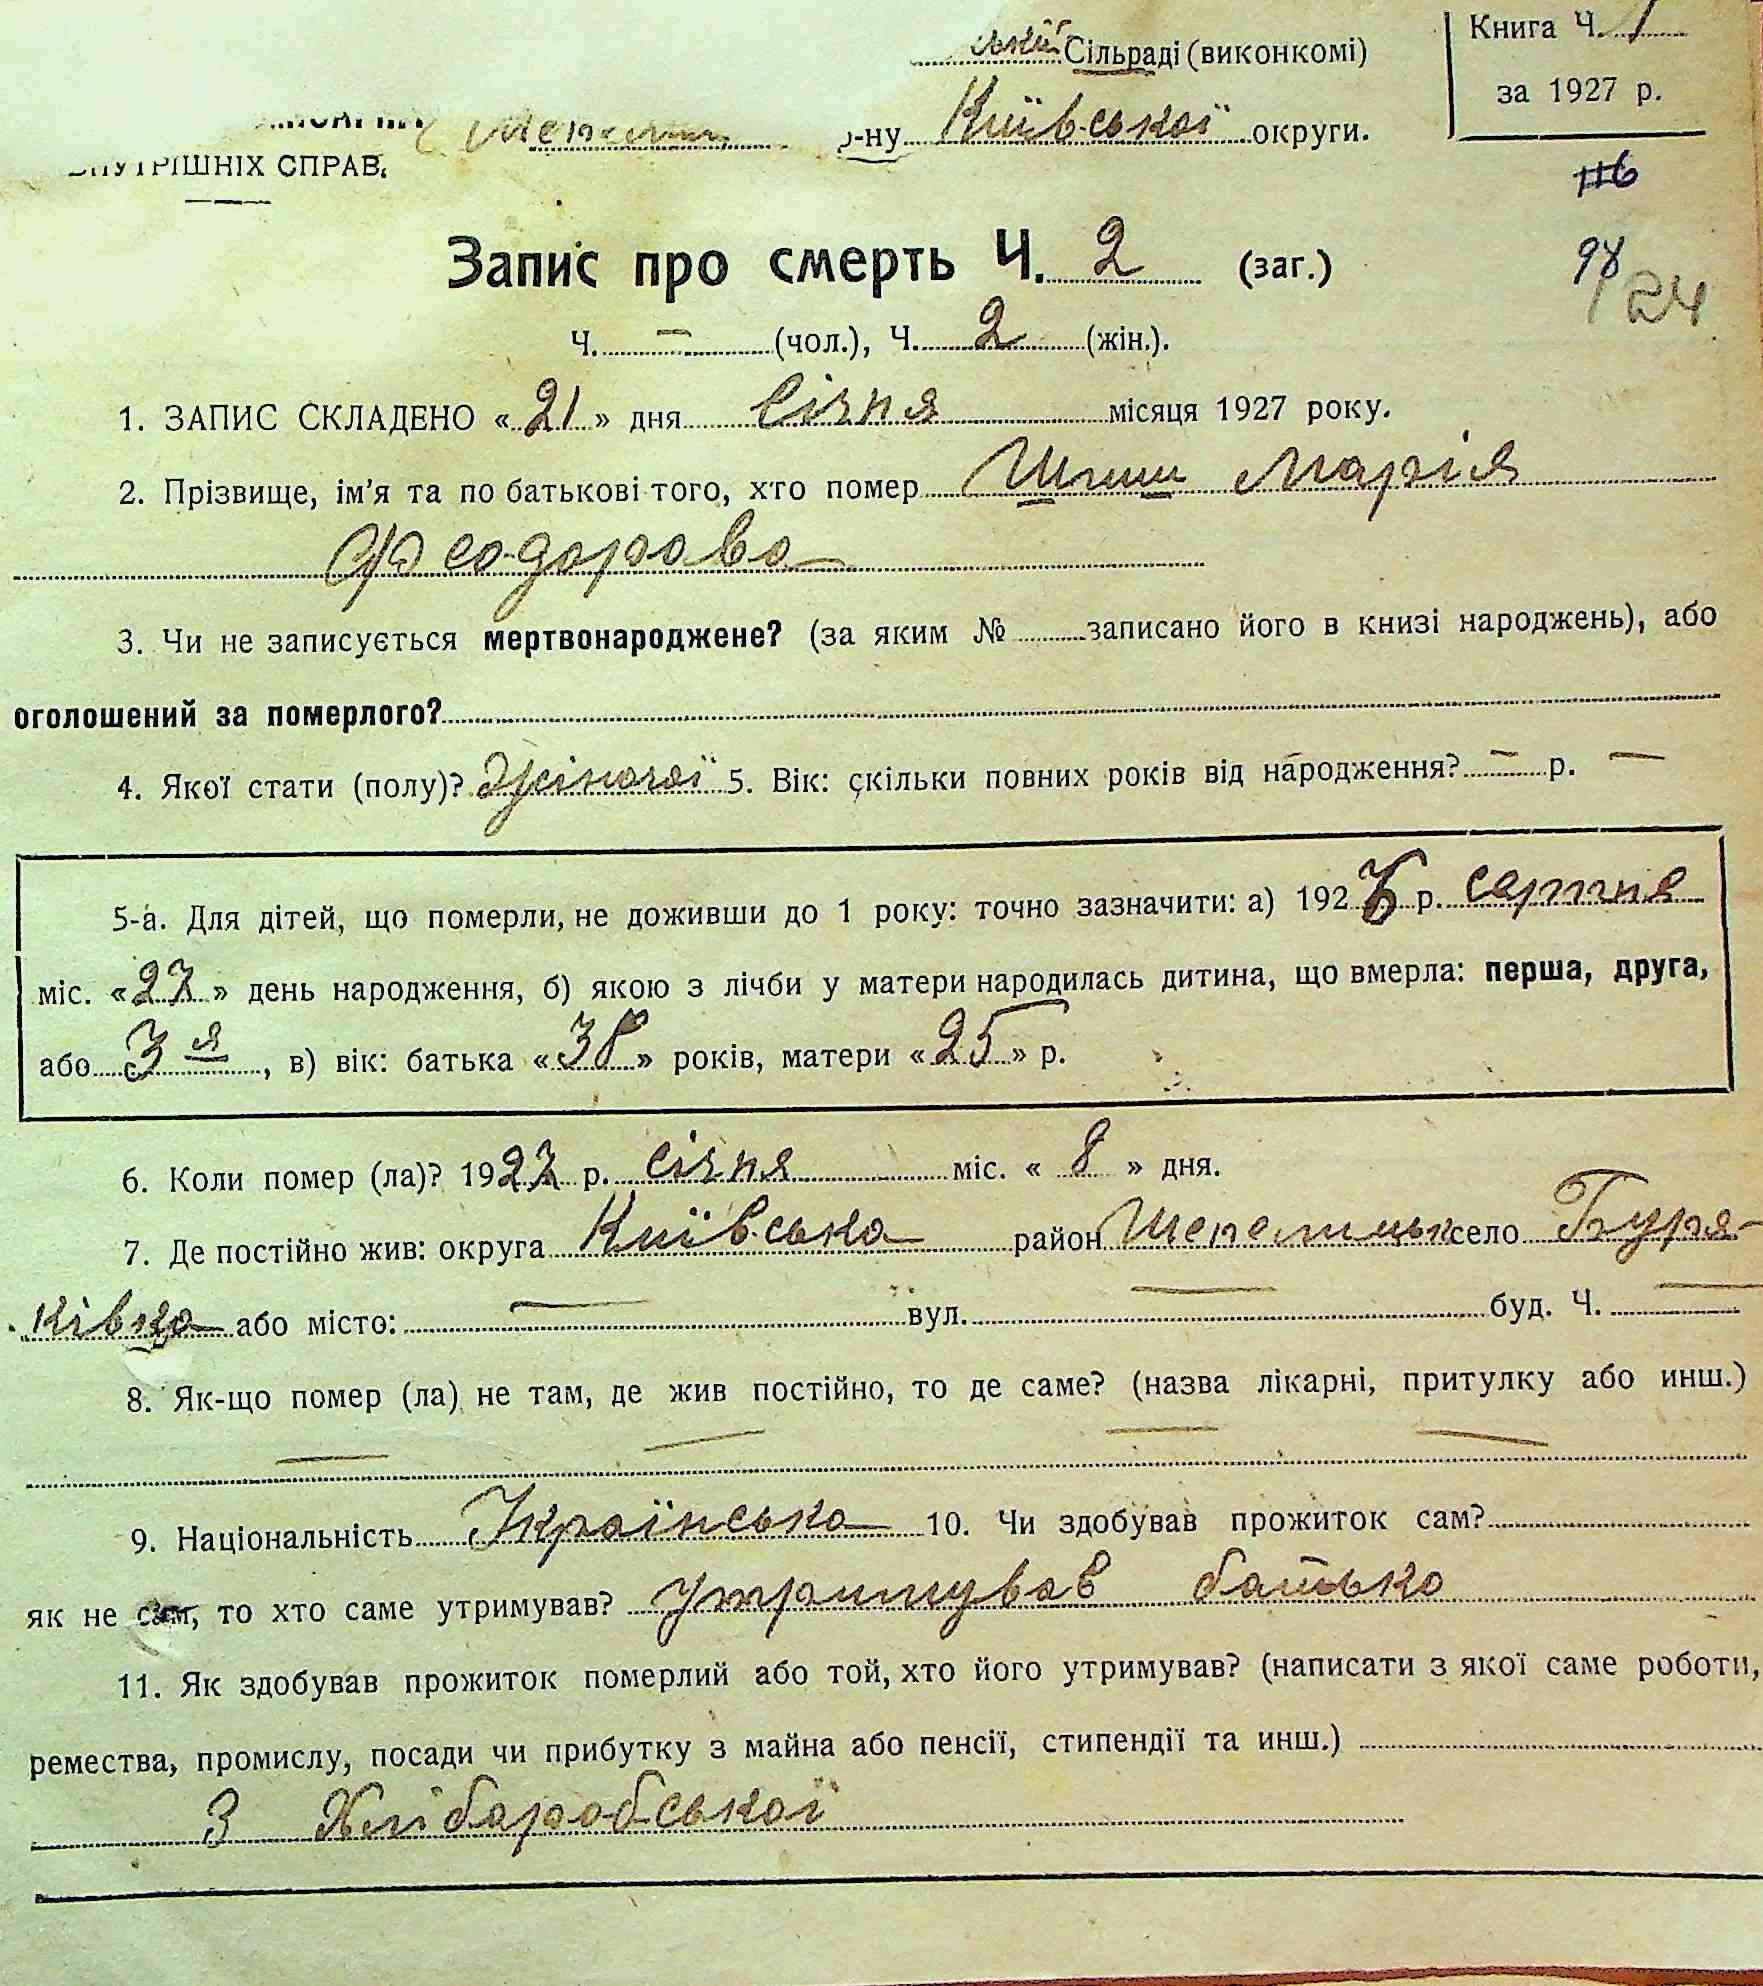 ській Сільраді (виконкомі)
Книга Ч. 1
за 1927 р.
р-ну Київської округи.
ВНУТРІШНІХ СПРАВ.
116
Запис про смерть Ч. 2 (заг.)
98
24
Ч. — (чол.), Ч. 2 (жін.).
1. ЗАПИС СКЛАДЕНО «21» дня Січня місяця 1927 року.
2. Прізвище, ім'я та по батькові того, хто помер Марія
Феодорова
3. Чи не записується мертвонароджене? (за яким № записано його в книзі народжень), або
оголошений за померлого?
4. Якої стати (полу)? Жіночої 5. Вік: скільки повних років від народження? — р. —
5-а. Для дітей, що померли, не доживши до 1 року: точно зазначити: а) 1926 р. серпня
міс. «27» день народження, б) якою з лічби у матери народилась дитина, що вмерла: перша, друга,
або 3я, в) вік: батька «38» років, матери «25» р.
6. Коли помер (ла)? 1927 р. січня міс. «8» дня.
7. Де постійно жив: округа Київська район Шепелицьк село Буря-
ківка або місто: — вул. — буд. Ч. —
8. Як-що помер (ла) не там, де жив постійно, то де саме? (назва лікарні, притулку або инш.)
— — — —
9. Національність Українська 10. Чи здобував прожиток сам?
як не сам, то хто саме утримував? утримував батько
11. Як здобував прожиток померлий або той, хто його утримував? (написати з якої саме роботи,
ремества, промислу, посади чи прибутку з майна або пенсії, стипендії та инш.)
З Хліборобської